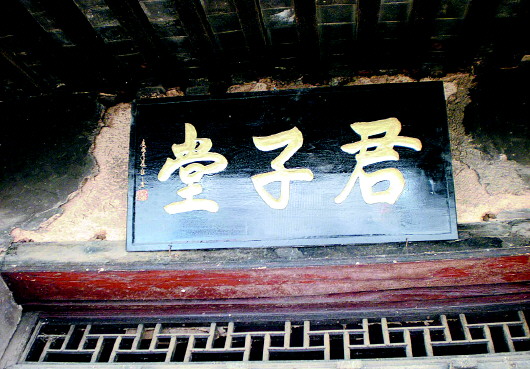 君子堂